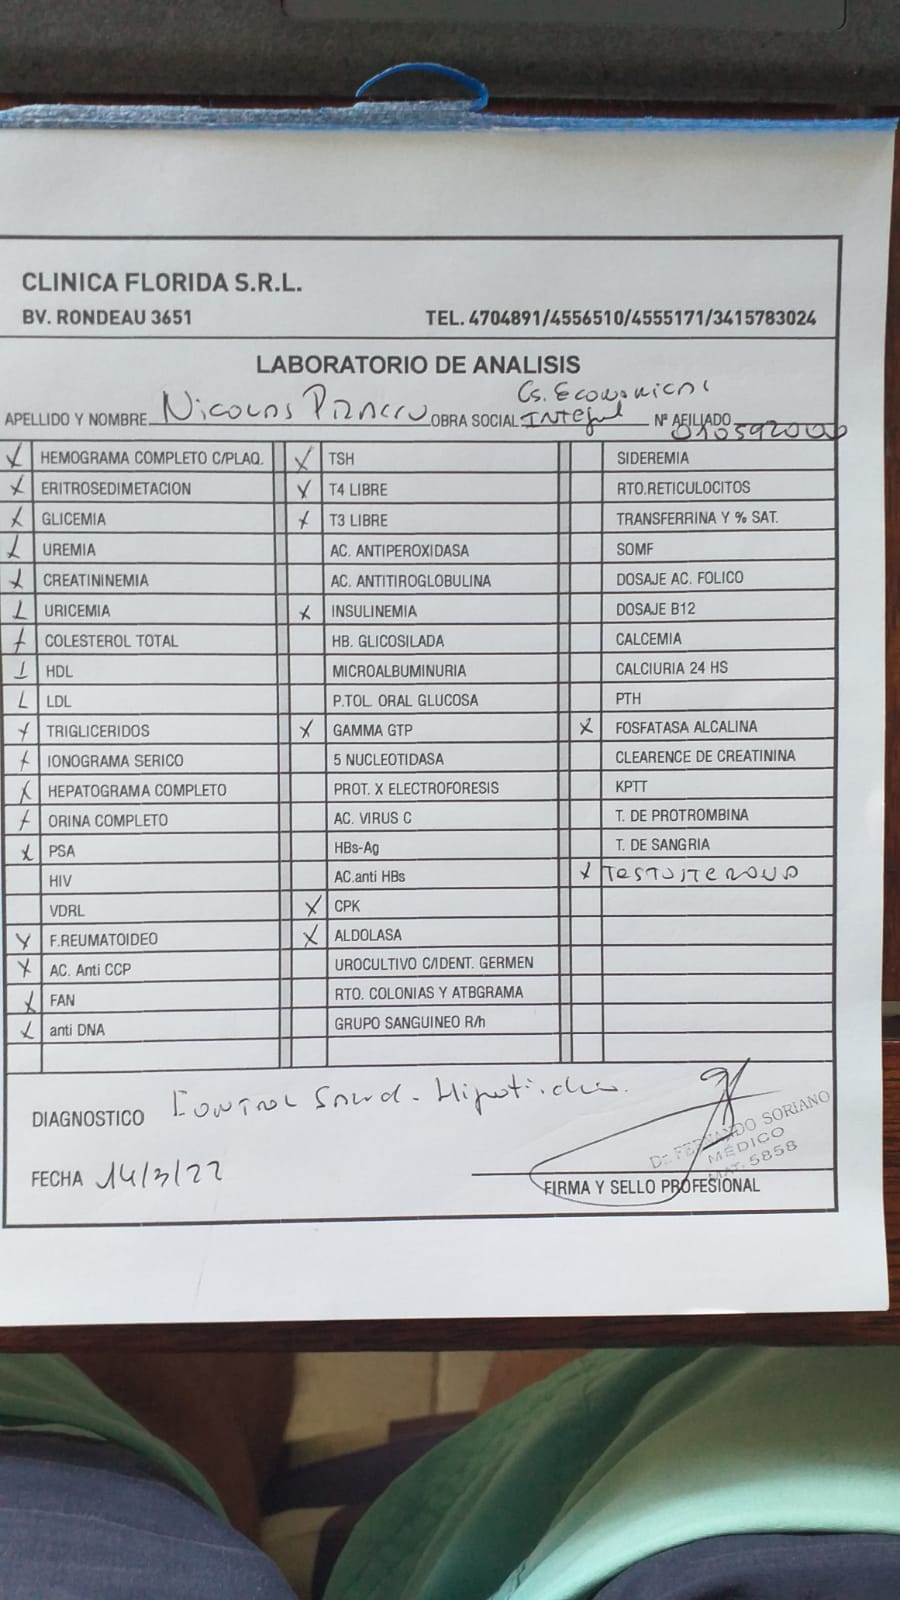 CLINICA FLORIDA S.R.L.
BV. RONDEAU 3651 TEL. 4704891/4556510/4555171/3415783024
LABORATORIO DE ANALISIS
Cs. Economicas
APELLIDO Y NOMBRE Nicolas OBRA SOCIAL Integral Nº AFILIADO
X HEMOGRAMA COMPLETO C/PLAQ. X TSH SIDEREMIA
X ERITROSEDIMETACION X T4 LIBRE RTO.RETICULOCITOS
X GLICEMIA X T3 LIBRE TRANSFERRINA Y % SAT.
X UREMIA AC. ANTIPEROXIDASA SOMF
X CREATININEMIA AC. ANTITIROGLOBULINA DOSAJE AC. FOLICO
X URICEMIA X INSULINEMIA DOSAJE B12
X COLESTEROL TOTAL HB. GLICOSILADA CALCEMIA
X HDL MICROALBUMINURIA CALCIURIA 24 HS
X LDL P.TOL. ORAL GLUCOSA PTH
X TRIGLICERIDOS X GAMMA GTP X FOSFATASA ALCALINA
X IONOGRAMA SERICO 5 NUCLEOTIDASA CLEARENCE DE CREATININA
X HEPATOGRAMA COMPLETO PROT. X ELECTROFORESIS KPTT
X ORINA COMPLETO AC. VIRUS C T. DE PROTROMBINA
X PSA HBs-Ag T. DE SANGRIA
HIV AC.anti HBs X TESTOSTERONA
VDRL X CPK
X F.REUMATOIDEO X ALDOLASA
X AC. Anti CCP UROCULTIVO C/IDENT. GERMEN
X FAN RTO. COLONIAS Y ATBGRAMA
X anti DNA GRUPO SANGUINEO R/h
DIAGNOSTICO Control Salud -
Dr. FERNANDO SORIANO
MÉDICO
MAT. 5858
FECHA 14/3/22
FIRMA Y SELLO PROFESIONAL